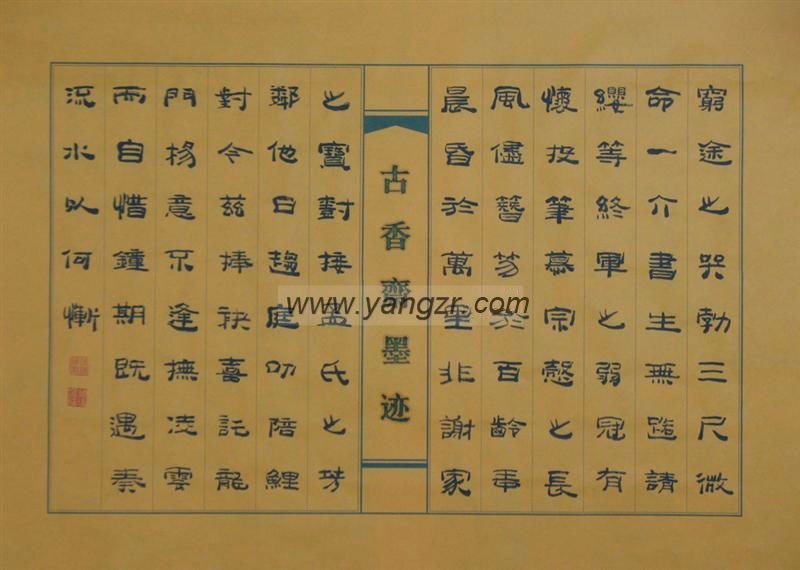 窮途之哭勃三尺微
命一介書生無路請
纓等終軍之弱冠有
懷投筆慕宗愨之長
風儘簪笏於百齡奉
晨昏於萬里非謝家
古香齋墨迹
之寶樹接孟氏之芳
鄰他日趨庭叨陪鯉
對今茲捧袂喜託龍
門楊意不逢撫凌雲
而自惜鐘期既遇奏
流水以何慚
www.yangzr.com